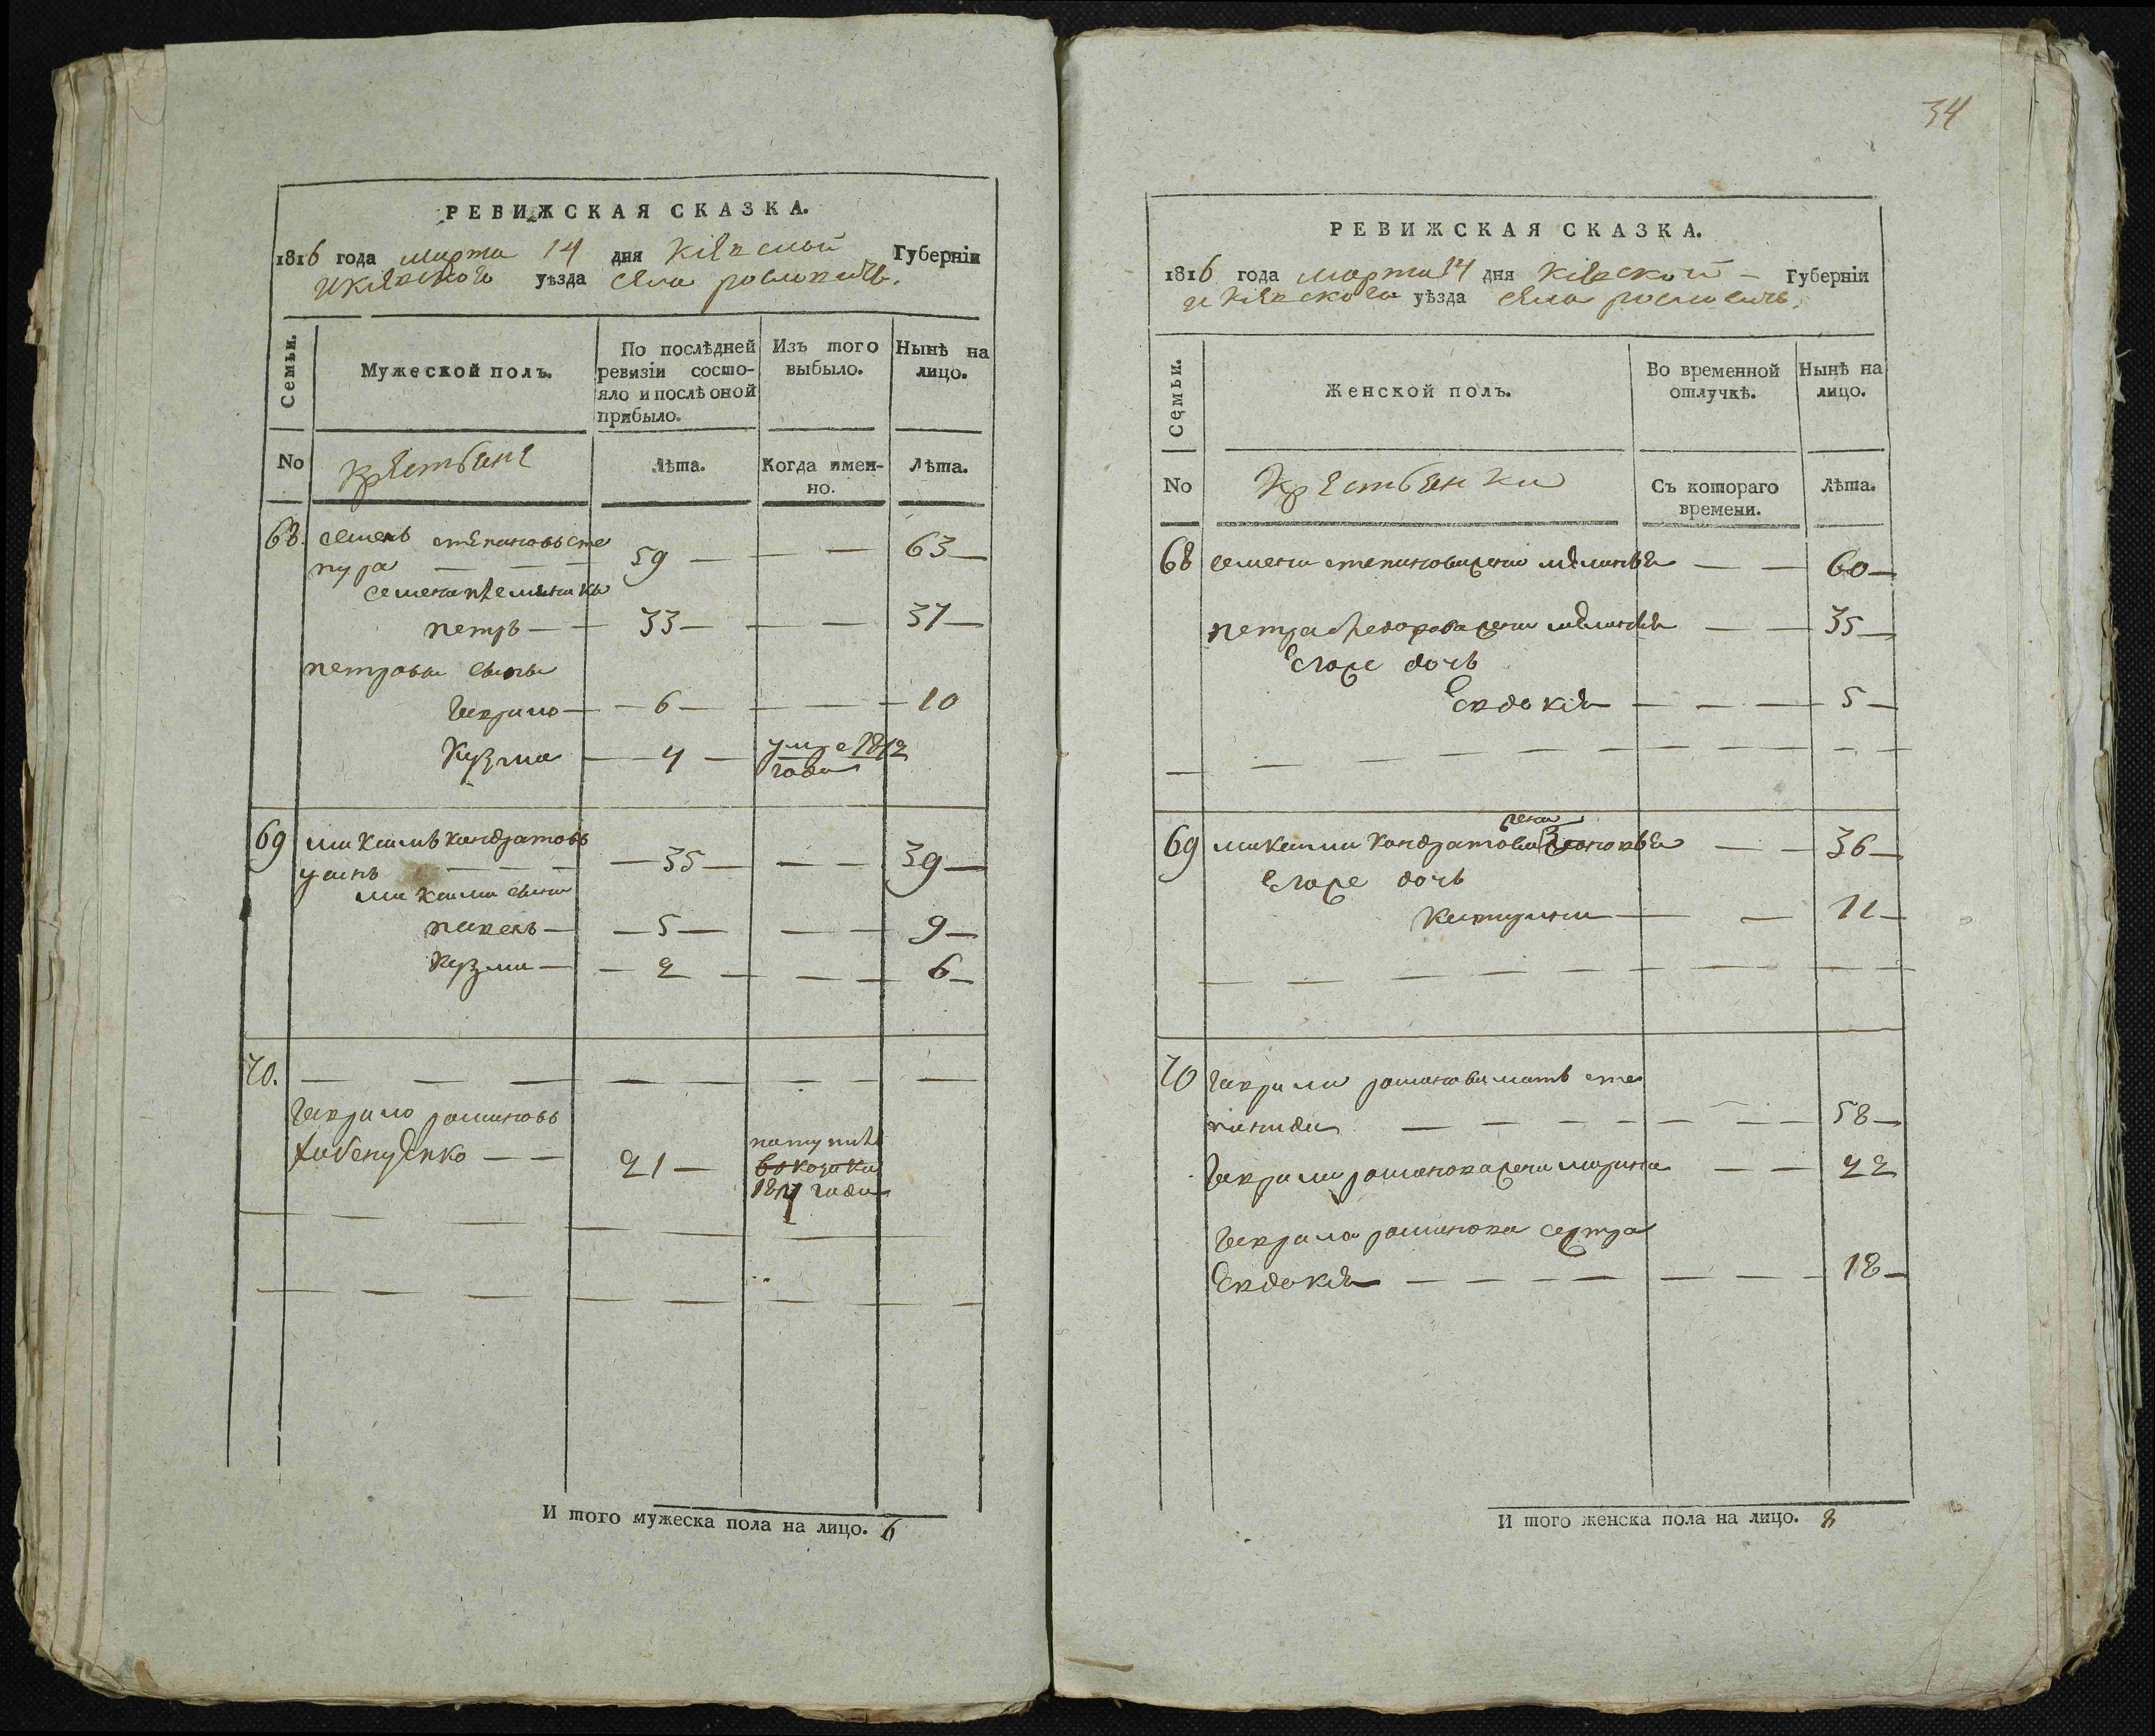 РЕВИЖСКАЯ СКАЗКА.
1816 года марта 14 дня Кіевской Губерніи
и Кіевского уѣзда села рославичь.
Семьи.
Мужеской полъ.
По послѣдней ревизіи состояло и послѣ оной прибыло.
Изъ того выбыло.
Нынѣ на лицо.
No
крестьяне
Лѣта.
Когда именно.
Лѣта.
68. семенъ степановъ сте
пура — — — 59 — — — 63 —
семена племяники
петръ — — 33 — — — 37 —
петровы сыны
Гаврило — — 6 — — — — 10
Кузма — — 4 — умре 1812
года
69 микита кондратовъ
— 35 — — — 39 —
микиты сыны
павелъ — — 5 — — — 9 —
Кузма — — 2 — — — 6 —
70. — — — — — — — — —
Гаврило романовъ
— — 21 —
поступилъ
в козаки
1812 года
И того мужеска пола на лицо. 6
34
РЕВИЖСКАЯ СКАЗКА.
1816 года марта 14 дня Кіевской — Губерніи
и Кіевского уѣзда села рославичь.
Семьи.
Женской полъ.
Во временной отлучкѣ.
Нынѣ на лицо.
No
крестьянки
Съ котораго времени.
Лѣта.
68 семена степанова жена меланья — — 60 —
петра федорова жена меланья — — 35 —
Егоже дочь
Евдокія — — — — 5 —
69 жена
кондратова — — 36 —
Егоже дочь
Катерина — — 11 —
70 Гаврила романова мать сте
панида — — — — — — — 58 —
Гаврила романова жена марина — — 22
Гаврила романова сестра
Евдокія — — — — — — — 18 —
И того женска пола на лицо. 8